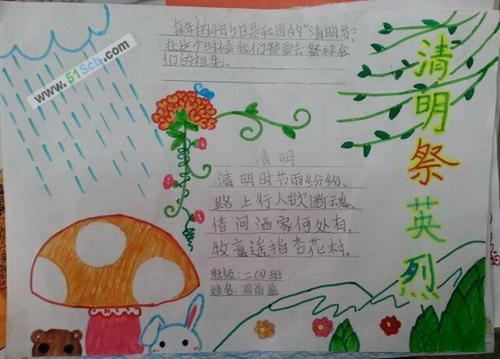 每年的4月5日是我国的"清明节",
在这个时候我们都要去祭拜我
们的祖先。
清明祭英烈
清明
清明时节雨纷纷、
路上行人欲断魂。
借问酒家何处有,
牧童遥指杏花村。
班级:二(3)班
姓名:周
www.51Scb.com